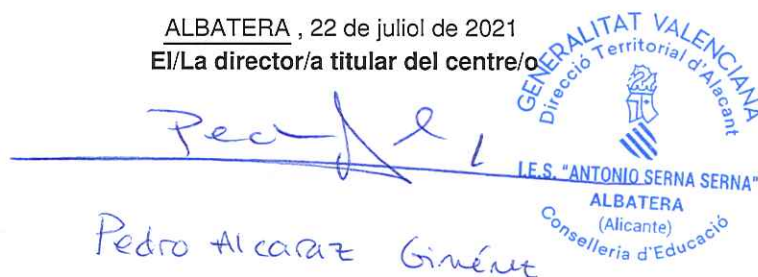 ALBATERA , 22 de juliol de 2021
El/La director/a titular del centre/o
GENERALITAT VALENCIANA
Direcció Territorial d'Alacant
I.E.S. "ANTONIO SERNA SERNA"
ALBATERA
(Alicante)
Conselleria d'Educació
Pedro Alcaraz Giménez